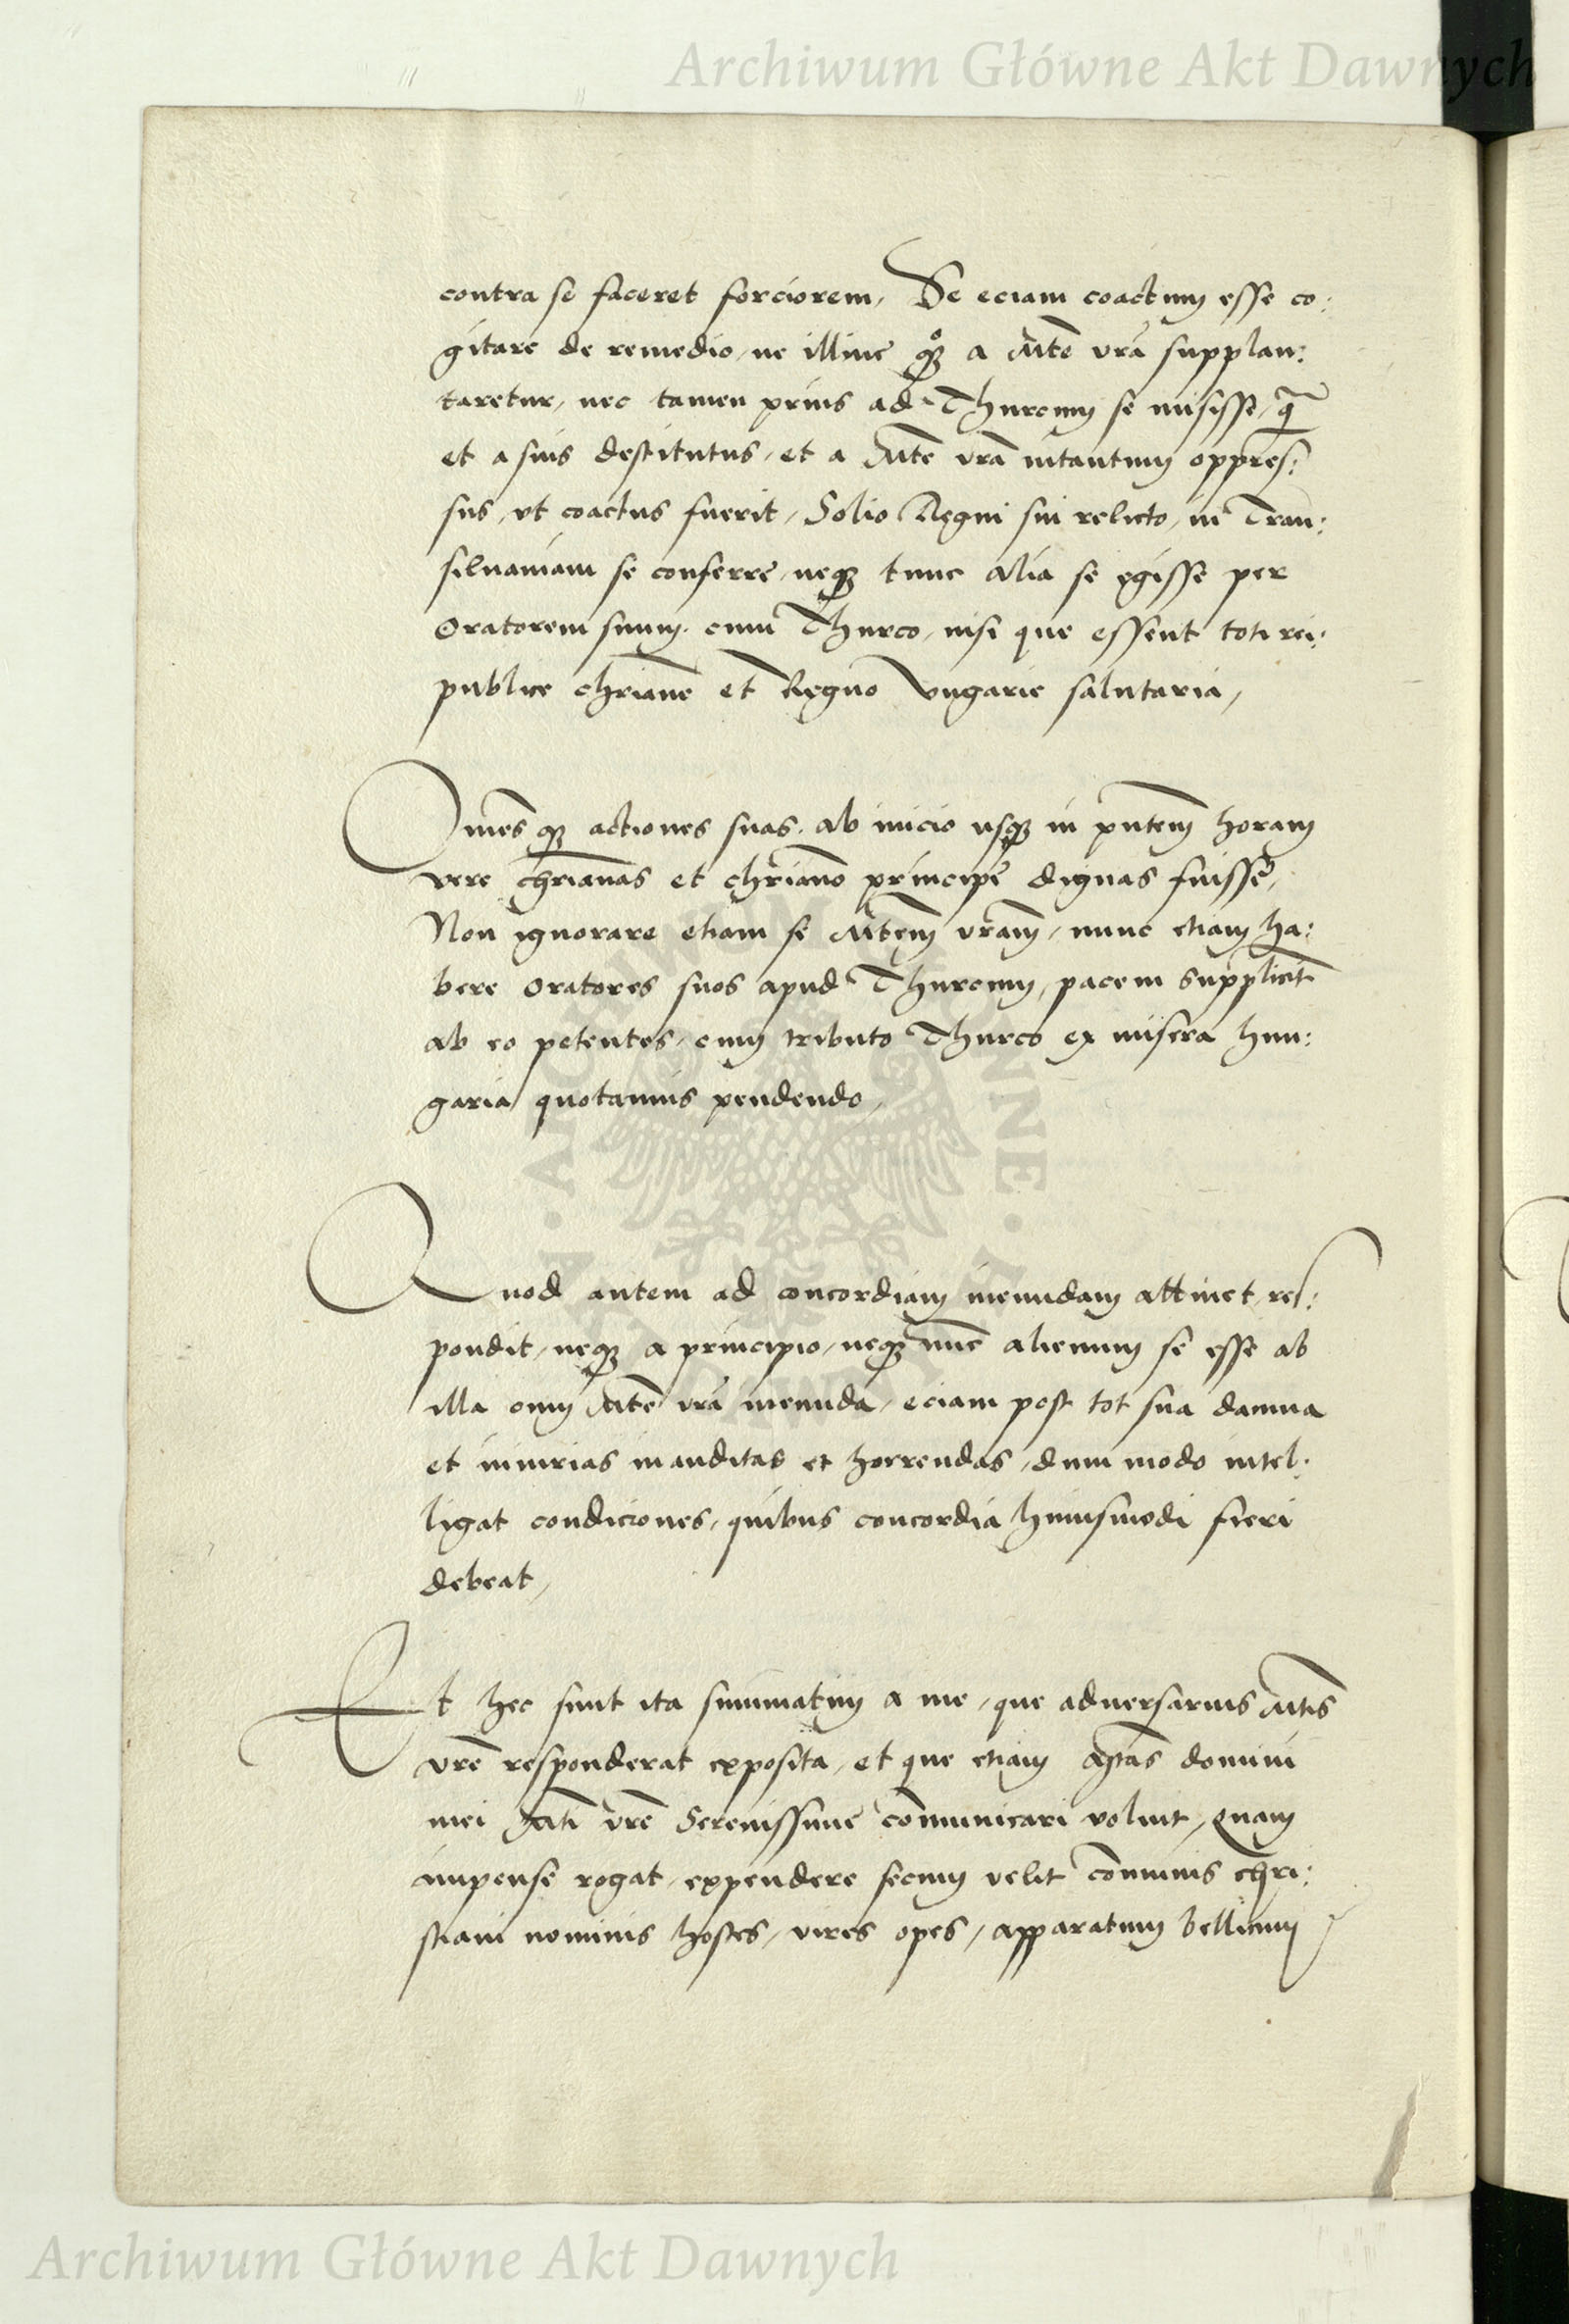 Archiwum Główne Akt Dawnych
contra se faceret forciorem, Se eciam coactum esse co:
gitare de remedio, ne illinc qꝫ a Mte vra supplan:
taretur, nec tamen prius ad Thurcum se misisse, q̃
et a suis destitutus, et a Mte vra intantum oppres:
sus, vt coactus fuerit, Solio Regni sui relicto, in Tran:
siluaniam se conferre, neqꝫ tunc alia se egisse per
Oratorem suum cum Thurco, nisi que essent toti rei:
publice chriane et Regno Vngarie salutaria,
Omes qꝫ actiones suas, ab inicio usqꝫ in pntem horam
vere chrianas et chriano principe dignas fuisse,
Non ignorare etiam se Mtem vram, nunc etiam ha:
bere Oratores suos apud Thurcum, pacem supplicit
ab eo petentes, cum tributo Thurco ex misera hun:
garia quotannis pendendo,
Quod autem ad concordiam ineundam attinet, res:
pondit, neqꝫ a principio, neqꝫ nunc alienum se esse ab
illa cum Mte vra ineunda, eciam post tot sua damna
et iniurias inauditas et horrendas, dum modo intel:
ligat condiciones, quibus concordia huiusmodi fieri
debeat,
Et hec sunt ita summatim a me, que aduersarius Mtis
vre responderat exposita, et que etiam Mtas domini
mei Mti vre Serenissime communicari voluit, Quam
impense rogat, expendere secum velit communis chri:
stiani nominis hostes, vires opes, apparatum bellicum
ARCHIWUM GŁÓWNE AKT DAWNYCH
Archiwum Główne Akt Dawnych